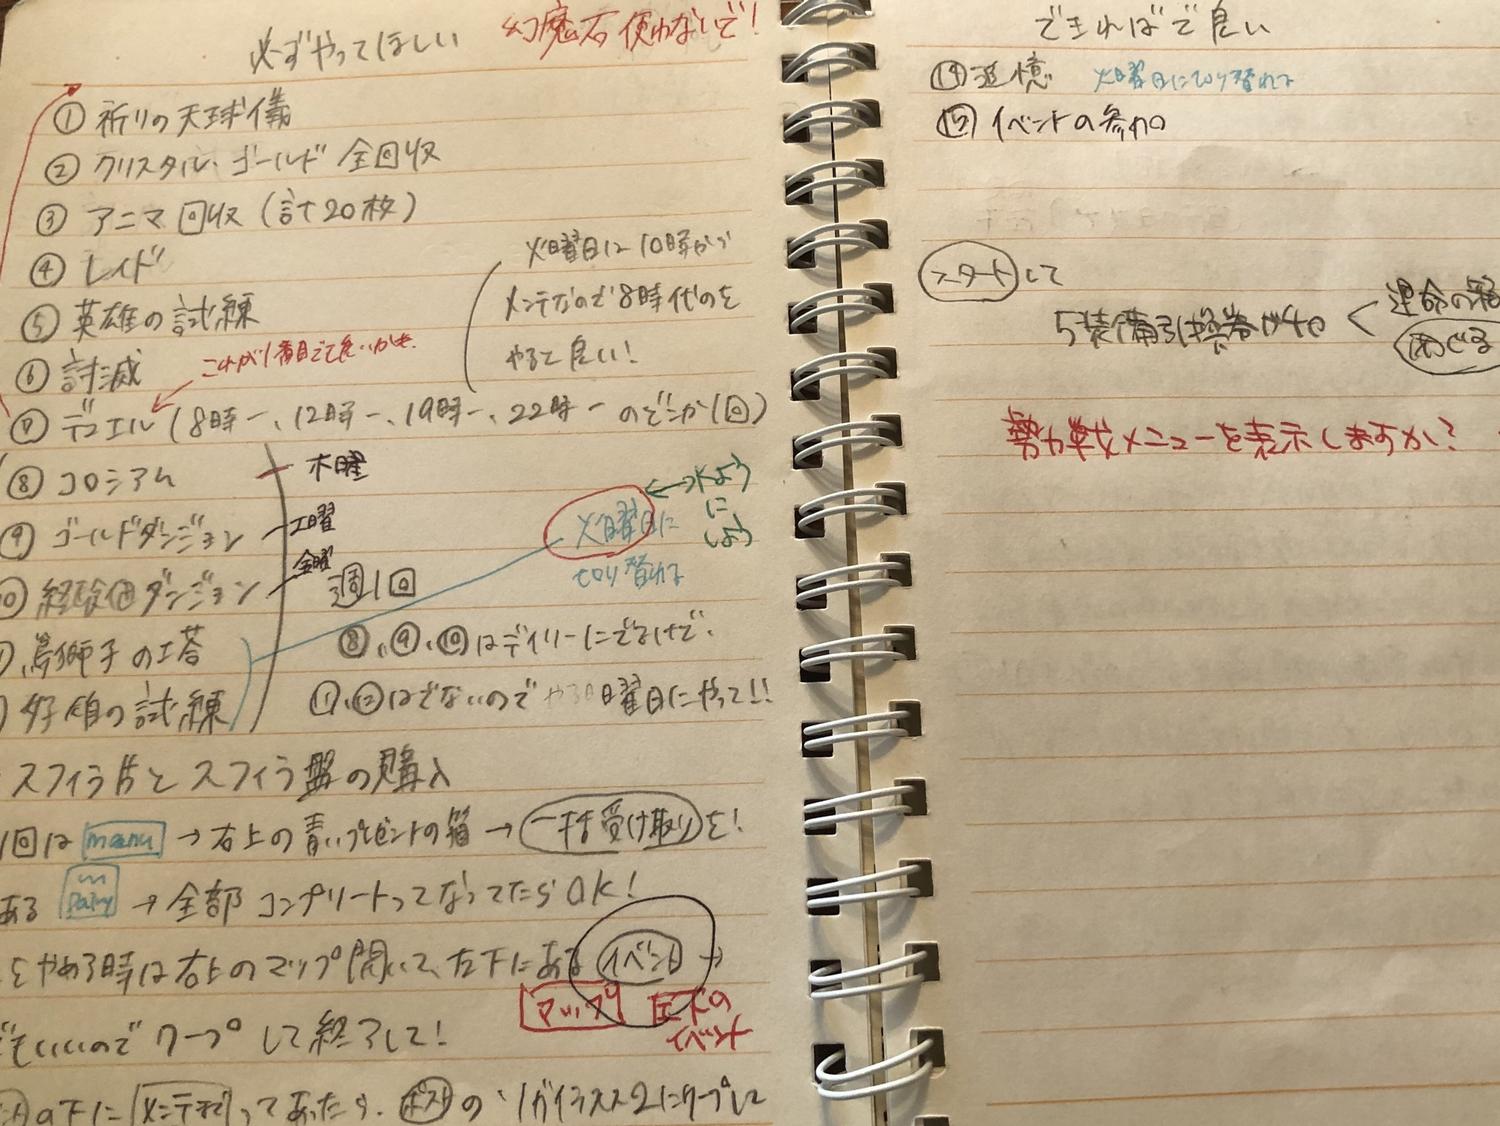 必ずやってほしい 幻魔石 使わないで!
① 祈りの天球儀
② クリスタル・ゴールド 全回収
③ アニマ回収(計20枚)
④ レイド
⑤ 英雄の試練
⑥ 討滅
これが1番目でて良いかも
火曜日は10時から
メンテなので8時代のを
やると良い!
⑦ デュエル(8時ー、12時ー、19時ー、22時ーのどこか1回)
⑧ コロシアム 木曜
⑨ ゴールドダンジョン 土曜
⑩ 経験値ダンジョン 金曜
週1回
火曜日に
切り替れる
水よう
に
しよう
獅子の塔
の試練
⑧、⑨、⑩はデイリーにでるけで、
⑪、⑫はでないので 日曜日にやって!!
スフィラ片とスフィラ盤の購入
1回は menu → 右上の青いプレゼントの箱 → 一括受け取り を!
ある Daily → 全部コンプリートってなってたらOK!
をやめる時は右上のマップ開いて、左下にある イベント →
マップ 左下の
イベント
でもいいのでワープして終了して!
の下に メンテ って あったら、 の
できればで良い
⑭ 追憶 火曜日に切り替れる
⑮ イベントの参加
スタート して
5装備引換券 < 運命の箱
勢力戦メニューを表示しますか?